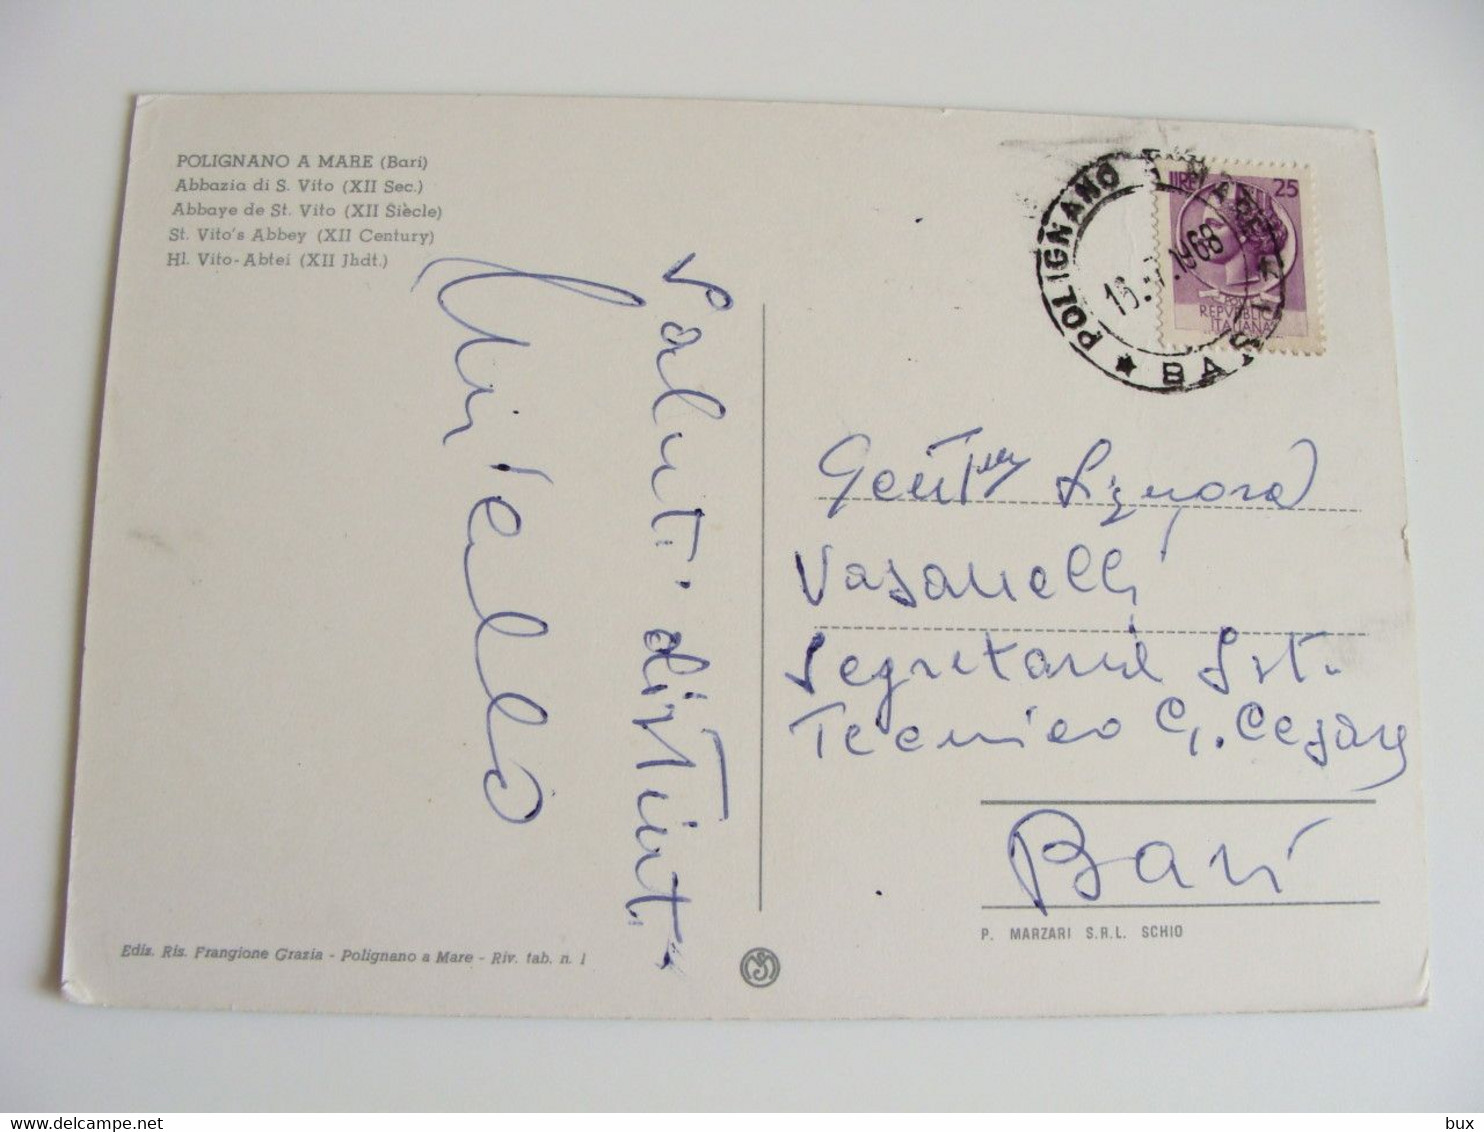 POLIGNANO A MARE (Bari)
Abbazia di S. Vito (XII Sec.)
Abbaye de St. Vito (XII Siècle)
St. Vito's Abbey (XII Century)
Hl. Vito-Abtei (XII Jhdt.)
Saluti distinti
POLIGNANO A MARE
1968
★ BARI
LIRE 25
REPVBBLICA
ITALIANA
Gent.ma Signora
Vasanelli
Segretaria Ist.
Tecnico G. Cesare
Bari
P. MARZARI S.R.L. SCHIO
Ediz. Ris. Frangione Grazia - Polignano a Mare - Riv. tab. n. 1
delcampe.net
bux